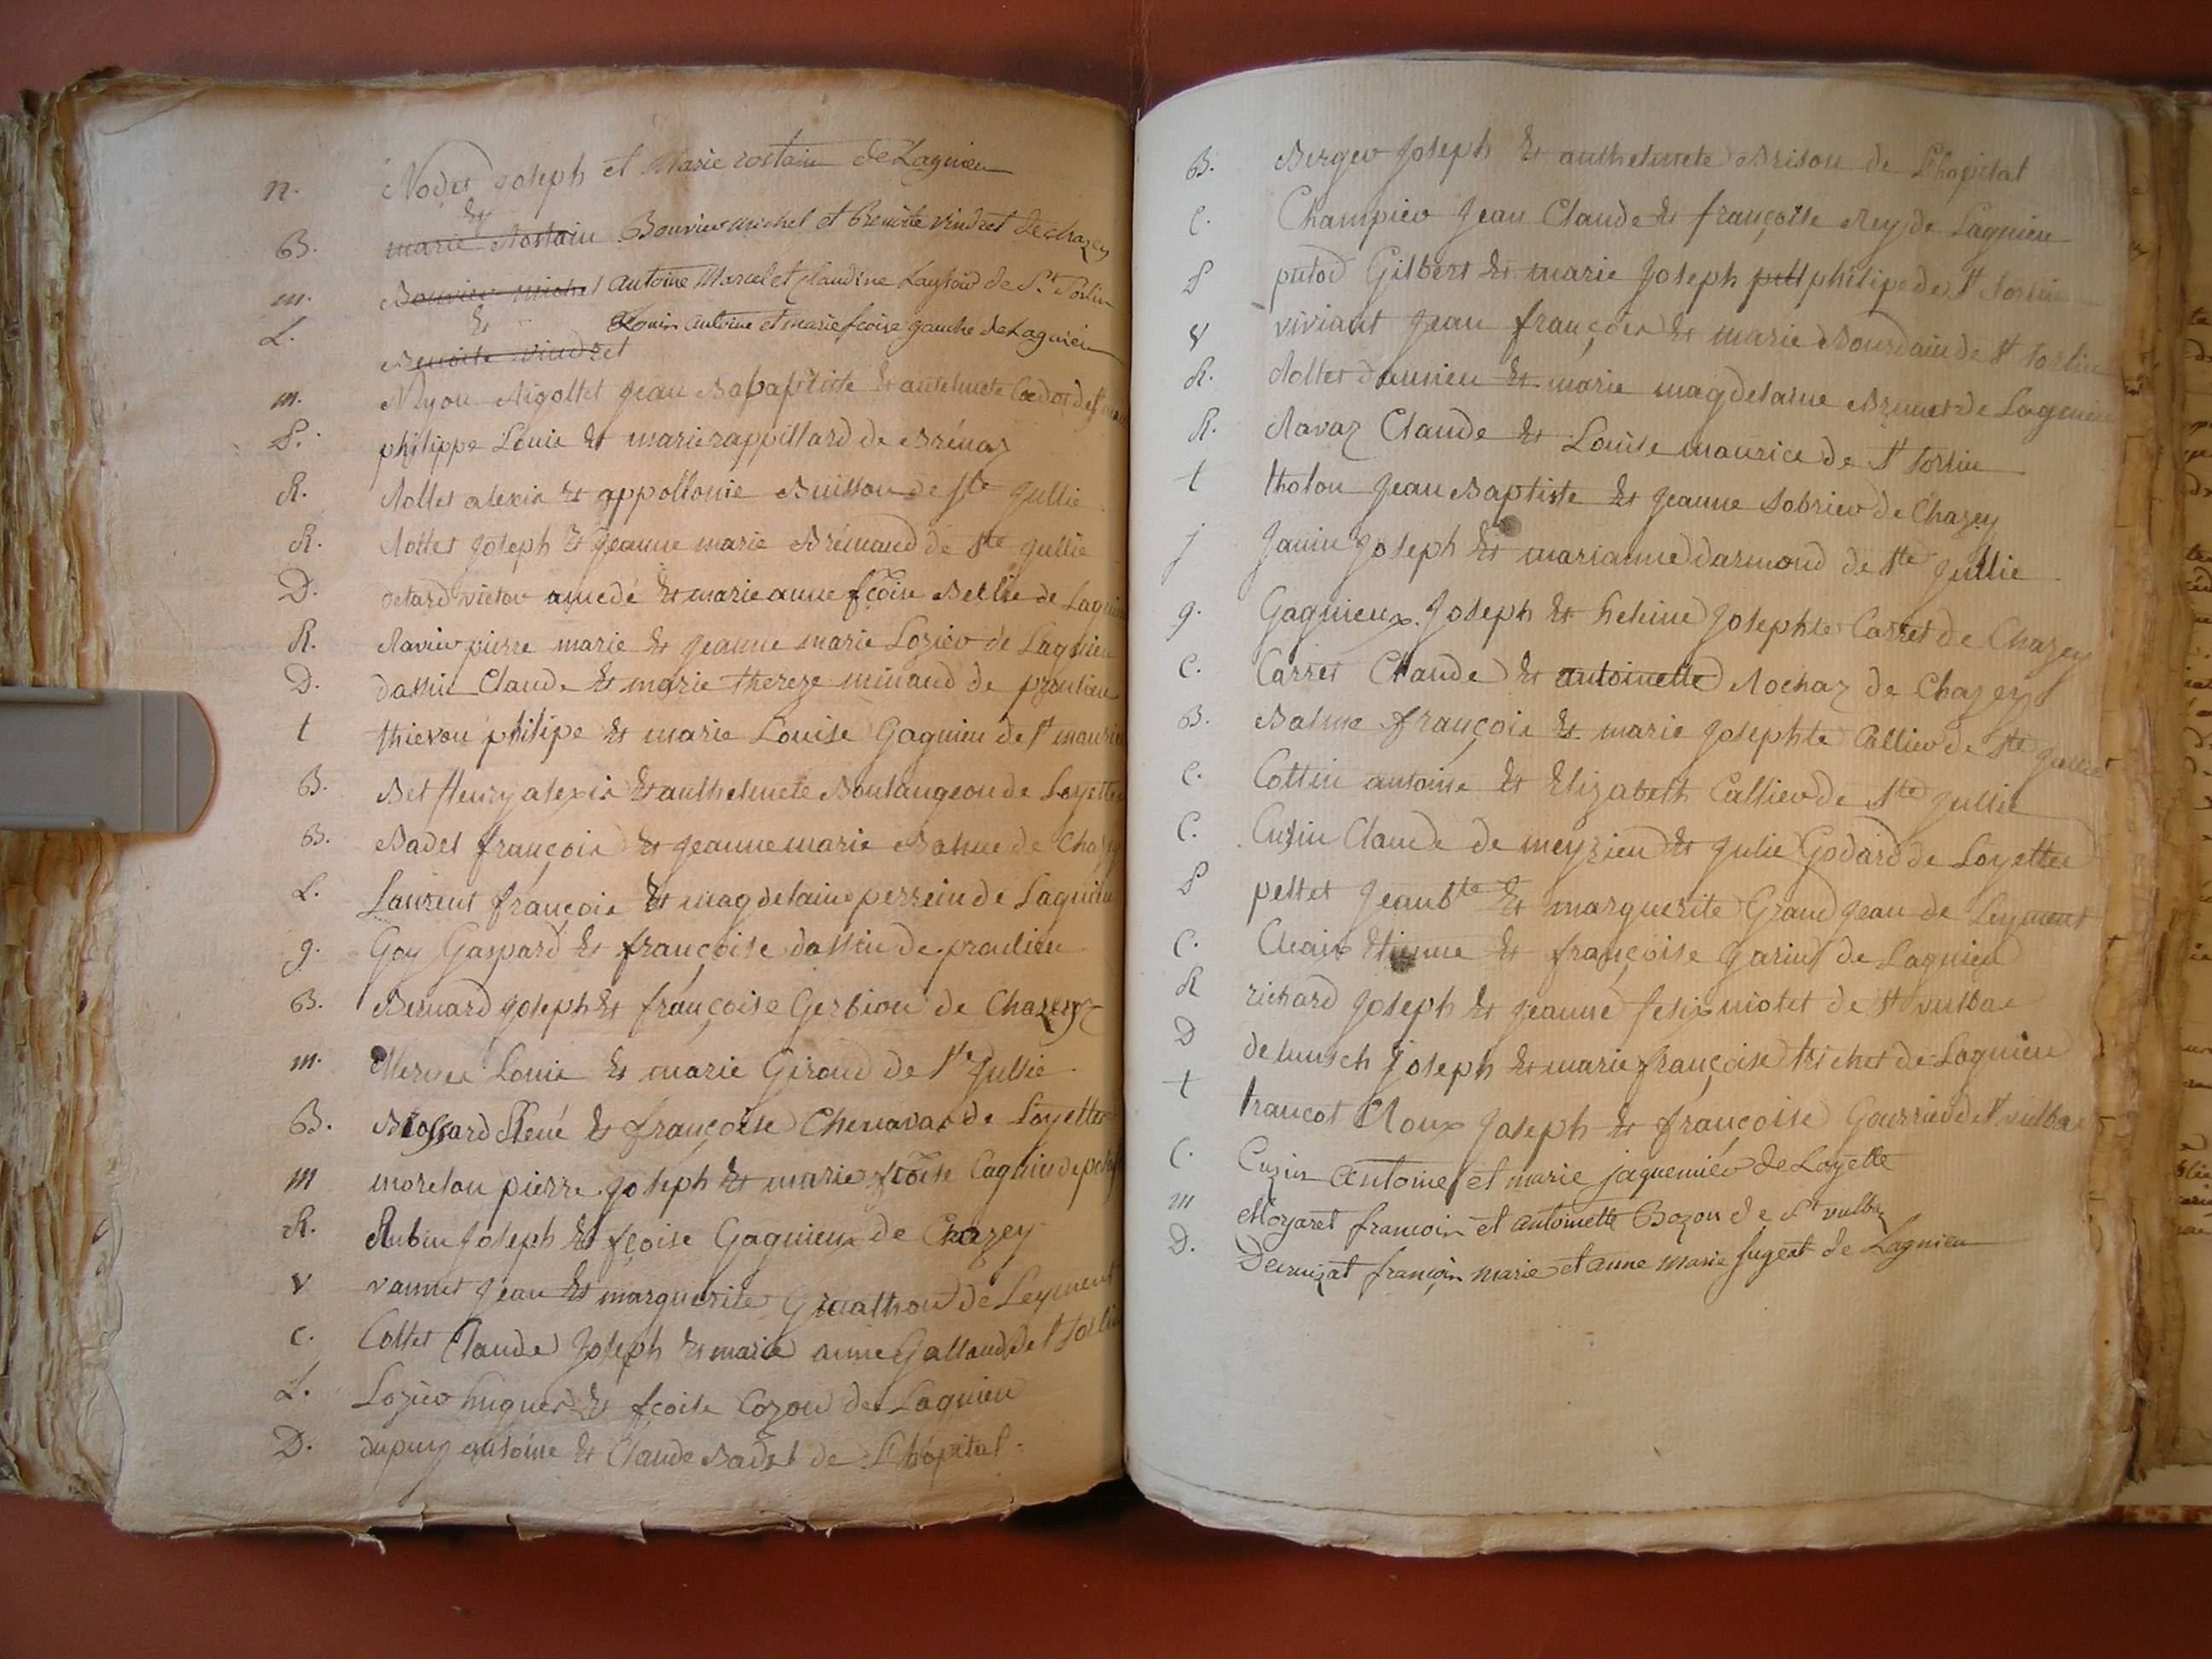 n. Nodet joseph et Marie rostain de Lagnieu
&
B. marie Rostain Bouvier michel et Benoite vindret de chazey
m. Bouvier michel antoine Marcel et Claudine de St Sorlin
&
L. Louis antoine et marie fcoise ganche de Lagnieu
Benoite vindret
m. Rigollet jean Babaptiste & antelmete
P. philippe Louis & marie rappillard de Brénaz
R. Rollet alexis & appollonie Buisson de Ste jullie
R. Rollet joseph & jeanne marie Brémand de Ste jullie
D. detard victor amedé & marie anne fcoise Bellie de Lagnieu
R. Ravier pierre marie & jeanne marie Lozier de Lagnieu
D. dassin Claude & marie thereze minaud de proulieu
t thievon philipe & marie Louise Gagnieu de St mauric
B. Bet fleury alexis & anthelmete Boulangeon de Loyettes
B. Badel françois & jeanne marie Balme de Chazey
L. Laurent françois & magdelaine perrein de Lagnieu
g. Goy Gaspard & françoise dassin de proulieu
B. Bernard joseph & françoise Gerbion de Chazey
m. Louis & marie Giroud de Ste jullie
B. Brossard René & françoise Chenavas de Loyettes
m morelon pierre joseph & marie fcoise
R. Rubin joseph & fcoise Gagnieux de Chazey
v vannet jean & marguerite de Leyment
c. Collet Claude joseph & marie anne Galland de St Sorlin
L. Lozier hugues & fcoise Cozon de Lagnieu
D. dupuy antoine & Claude Badel de L'hôpital
B. Berger joseph & anthelmete Brison de L'hopital
C. Champier jean Claude & françoise Rey de Lagnieu
P putod Gilbert & marie joseph pill philipe de St Sorlin
v viviant jean françois & marie Bourdain de St Sorlin
R. Rollet damien & marie magdelaine Brunet de Lagnieu
R. Ravaz Claude & Louise maurice de St Sorlin
t tholon jean Baptiste & jeanne Sobrier de Chazey
j janin joseph & marianne darmond de Ste jullie
g. Gagnieux joseph & heleine josephte Carret de Chazey
C. Carret Claude & antoinette Rochaz de Chazey
B. Balme françois & marie josephte Callier de Ste jullie
C. Cottin antoine & Elizabeth Callier de Ste jullie
C. Cuzin Claude de meyzieu & julie Godard de Loyettes
P peltet jean bte & marguerite Grand jean de Leyment
C. Etienne & françoise garin de Lagnieu
R richard joseph & jeanne felix niotet de St vulbas
D joseph & marie françoise trichet de Lagnieu
t trancot Roux joseph & françoise Gourrier de St vulbas
C. Cuzin antoine et marie jaquemier de Loyette
m Moyaret francois et antoinette Bozon de St vulbaz
D. Decruizat françois marie et anne marie fugent de Lagnieu